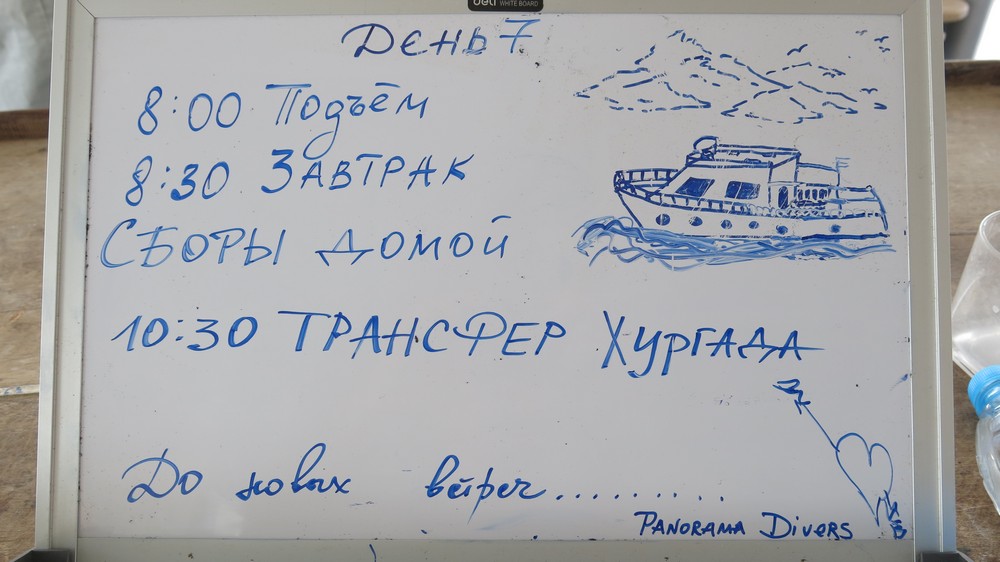 deli WHITE BOARD
День 7
8:00 Подъём
8:30 ЗАВТРАК
СБОРЫ ДОМОЙ
10:30 ТРАНСФЕР ХУРГАДА
До новых встреч..........
PANORAMA DIVERS